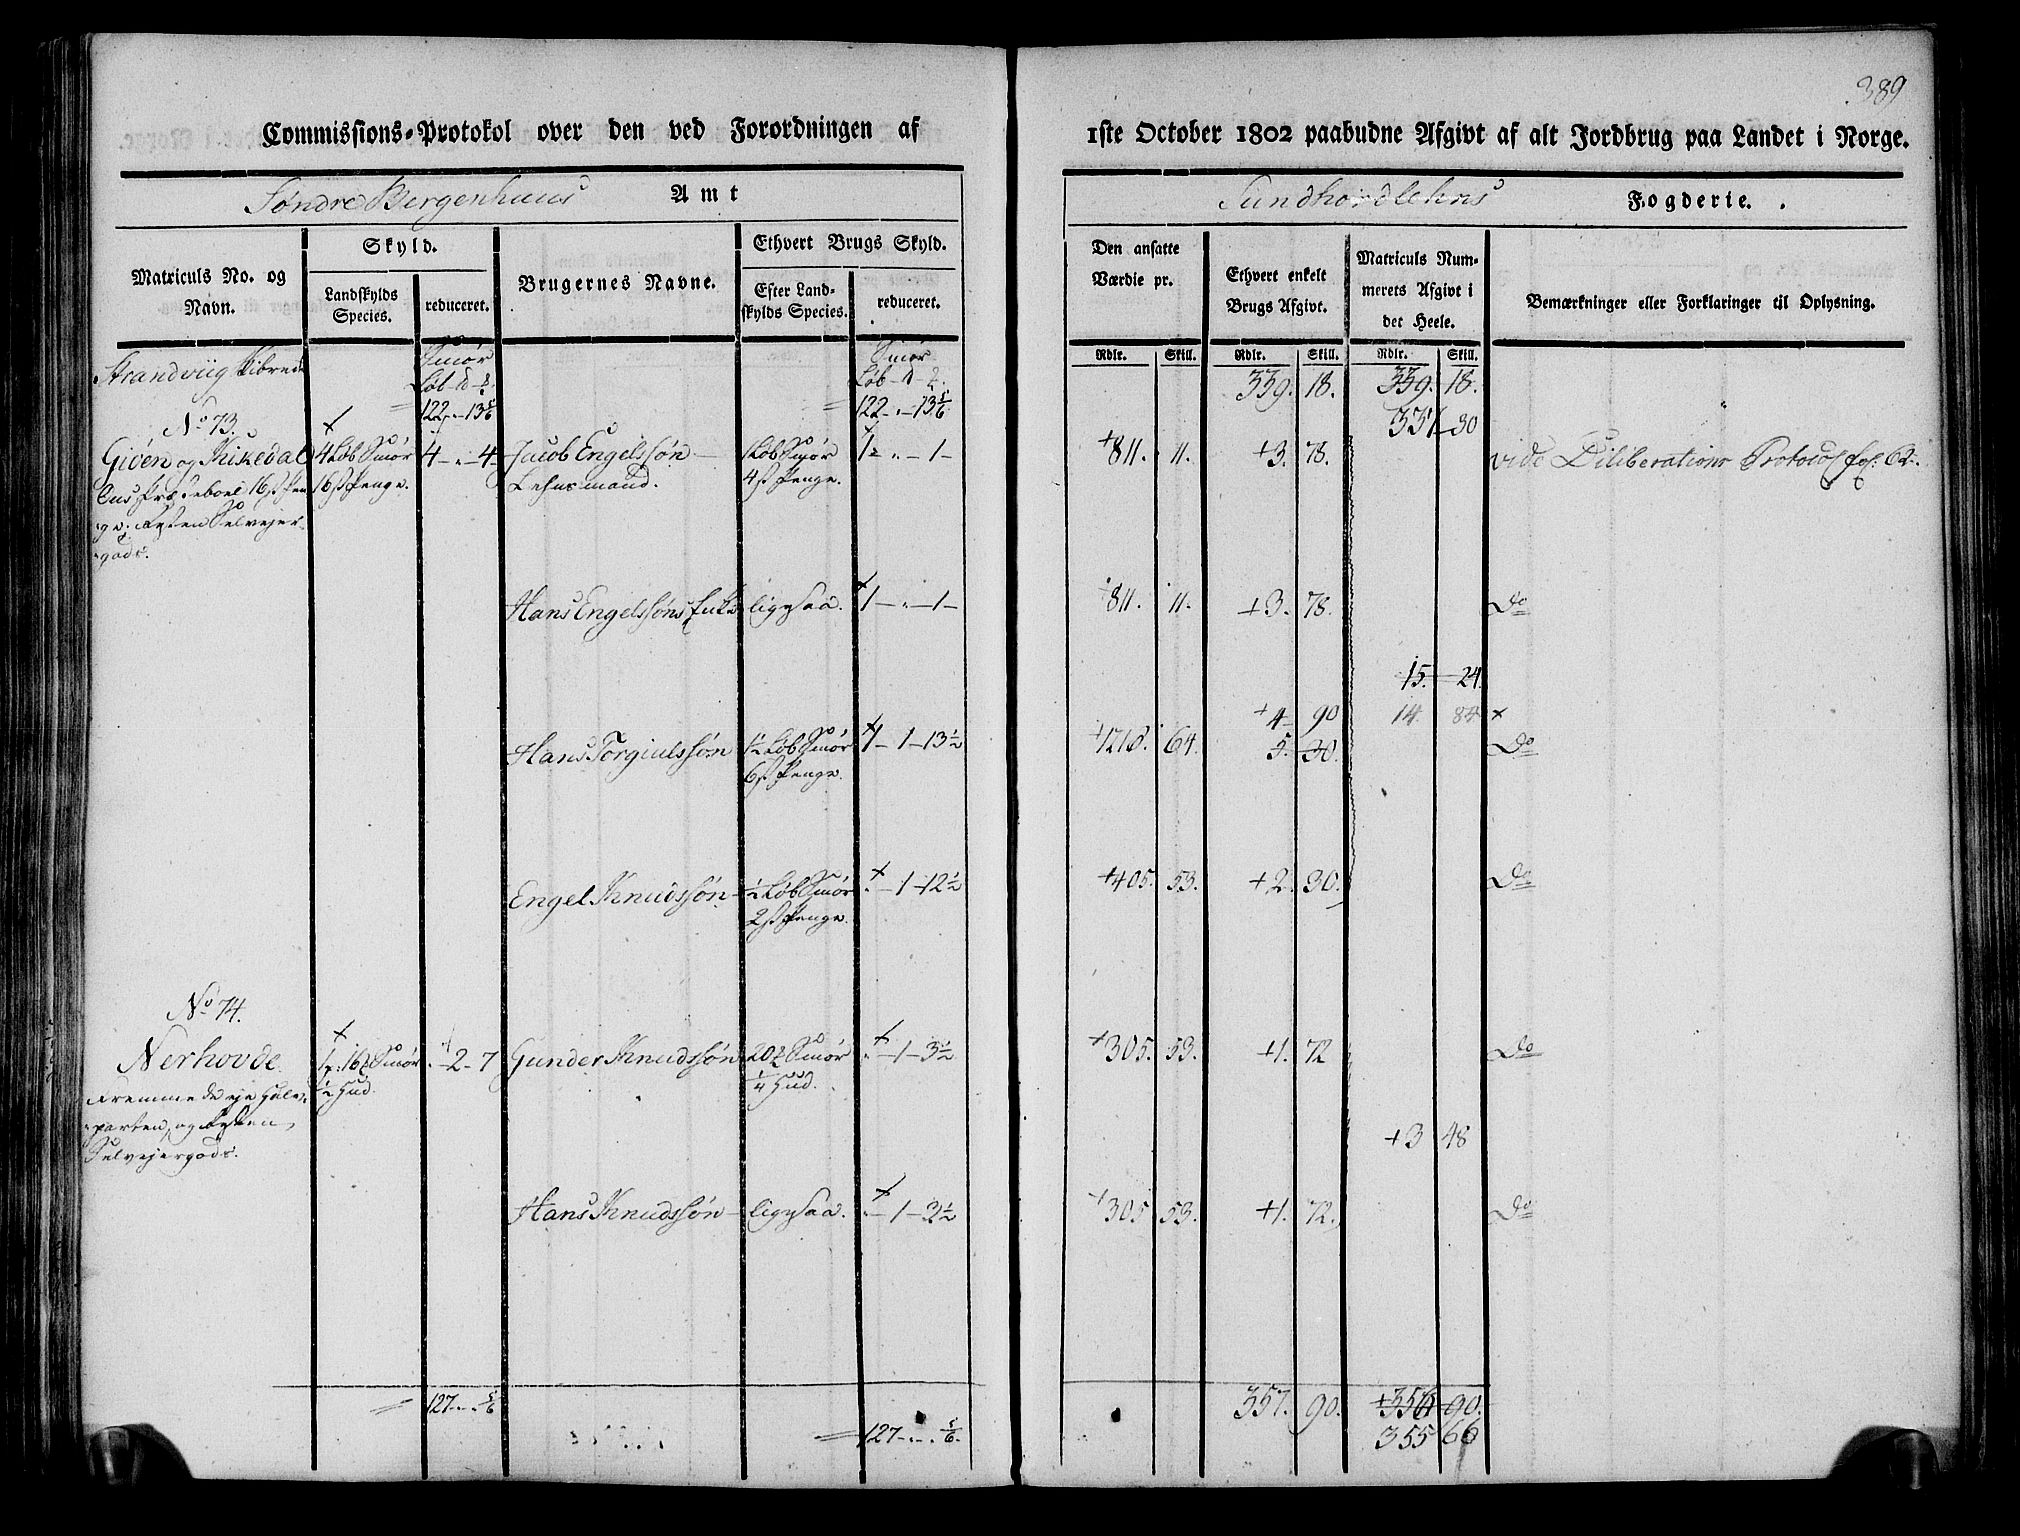 389
Commissions-Protokol over den ved Forordningen af
1ste October 1802 paabudne Afgivt af alt Jordbrug paa Landet i Norge.
Søndre Bergenhuus Amt
Sundhordlehns Fogderie.
Matriculs No. og Navn.
Skyld.
Landskylds Species.
reduceret.
Brugernes Navne.
Ethvert Brugs Skyld.
Efter Landskylds Species.
reduceret.
Den ansatte Værdie pr.
Ethvert enkelt Brugs Afgivt.
Matriculs Nummerets Afgivt i det Heele.
Bemærkninger eller Forklaringer til Oplysning.
Rdlr. Skill. Rdlr. Skill. Rdlr. Skill.
Strandviig Skibrede
Smør
Smør
122 - " - 13 5/6
122 - " - 13 5/6
339. 18. 339. 18.
337 30
No 73.
Giøen og 4 Løb Smør 4 - " - 4 - Jacob Engelssøn 1 Løb Smør 1 - " - 1 - +811. 11. +3. 78. vide Deliberations Protocol fol: 62.
16 Penge. Lehnsmand. 4 Penge.
Selvejer
gods.
Hans Engelssøns Enke ligesaa. 1 - " - 1 - 811. 11. +3. 78. Do
15. 24.
+4 90 14. 84 x
Hans Torgiulssøn 1 1/2 Løb Smør 1 - 1 - 13 1/2 +1216. 64. 5. 30. Do
6 Penge.
Engel Knudssøn 1/2 Løb Smør " - 1 - 12 1/2 +405. 53. +2. 30. Do
2 Penge.
No 74.
Nerhovde Smør " - 2 - 7 Gunder Knudssøn Smør " - 1 - 3 1/2 +305. 53. +1. 72 Do
1/2 Hud 1/4 Hud.
Fremmede eje Halv-
parten, og
Selvejergods.
+3 48
Hans Knudssøn ligesaa. " - 1 - 3 1/2 +305 53. +1. 72. Do
127 - " - 5/6
357. 90. +356 90.
127 - " - 5/6.
355 66